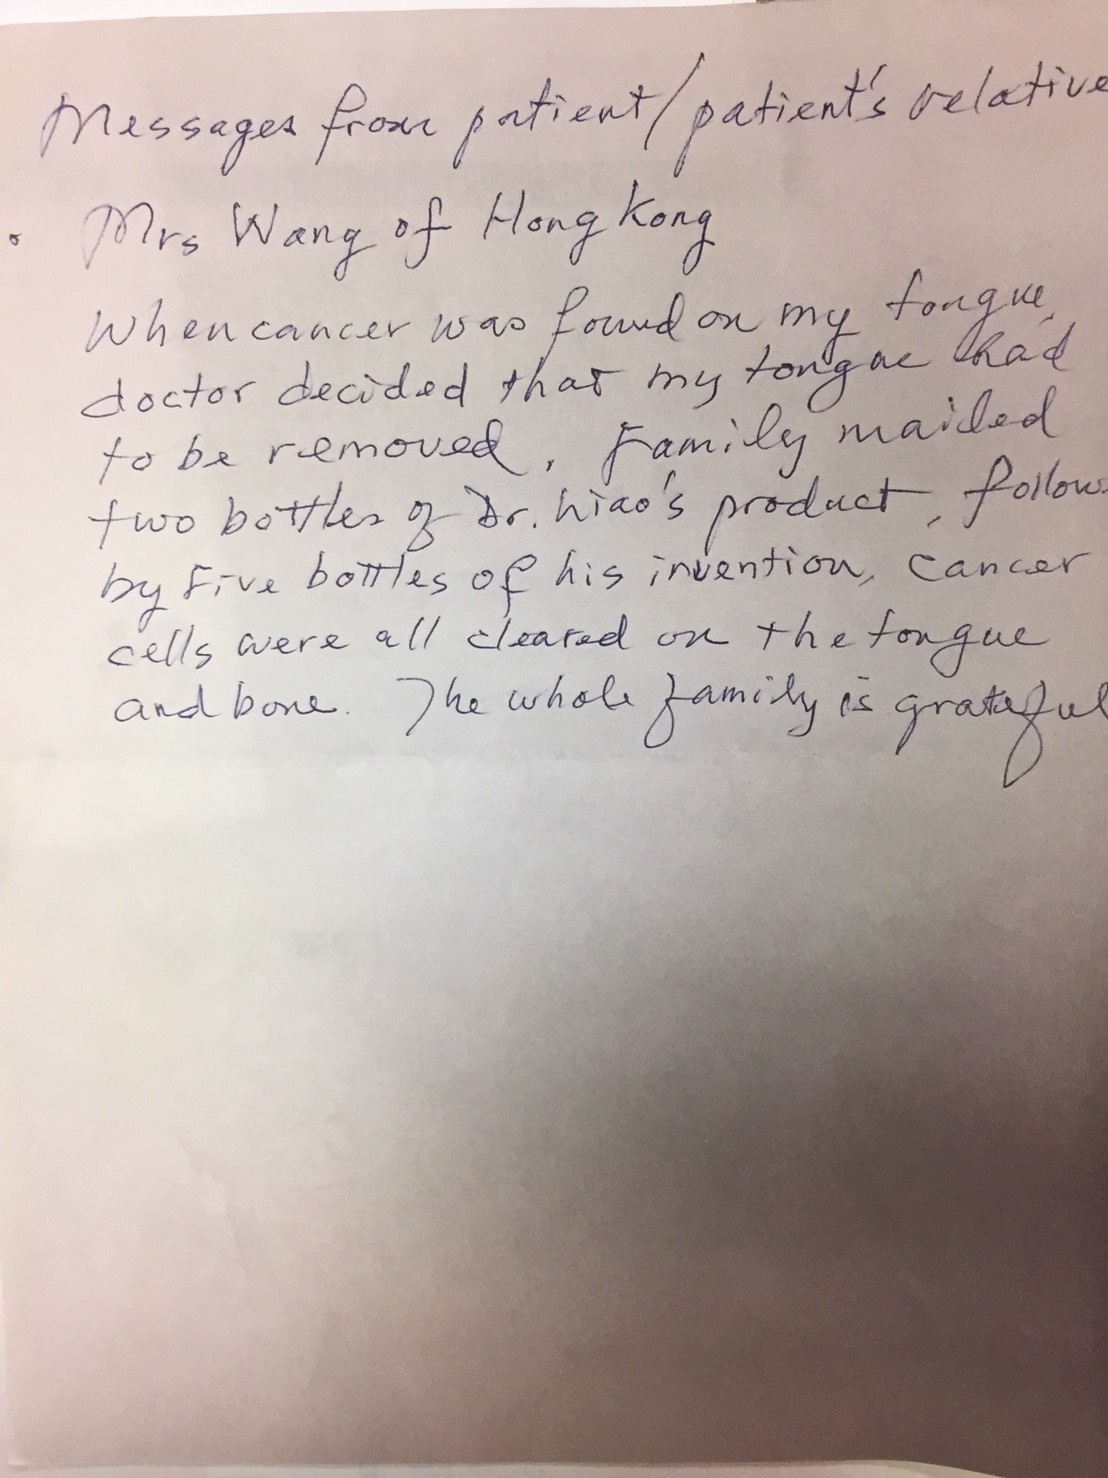 Messages from patient/patient's relative
• Mrs Wang of Hong Kong
When cancer was found on my tongue,
doctor decided that my tongue had
to be removed. Family mailed
two bottles of Dr. Liao's product, follow
by Five bottles of his invention, cancer
cells were all cleared on the tongue
and bone. The whole family is grateful